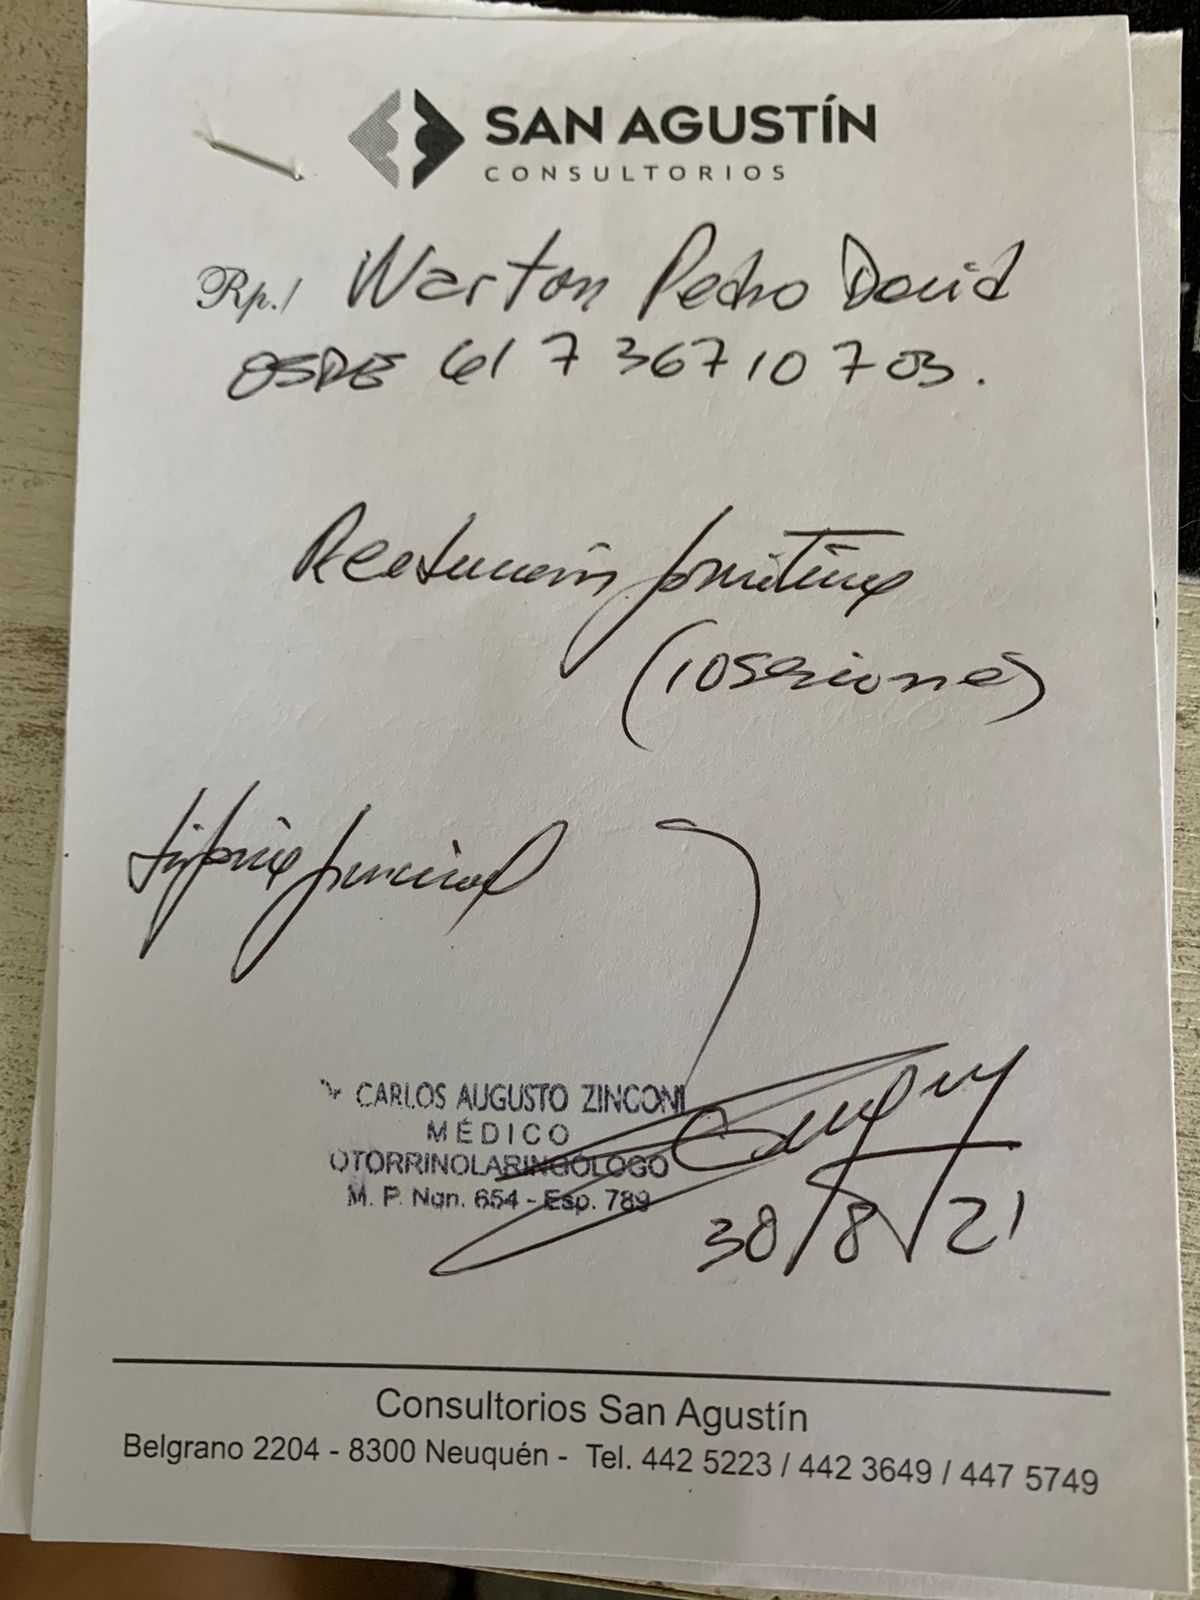 SAN AGUSTÍN
CONSULTORIOS
Rp./ Warton Pedro David
OSDE 61 7 36710 7 03.
Reeducación fonética
(10 sesiones)
Disfonía funcional
CARLOS AUGUSTO ZINCONI
MÉDICO
OTORRINOLARINGÓLOGO
M. P. Nqn. 654 - Esp. 789
30/8/21
Consultorios San Agustín
Belgrano 2204 - 8300 Neuquén - Tel. 442 5223 / 442 3649 / 447 5749